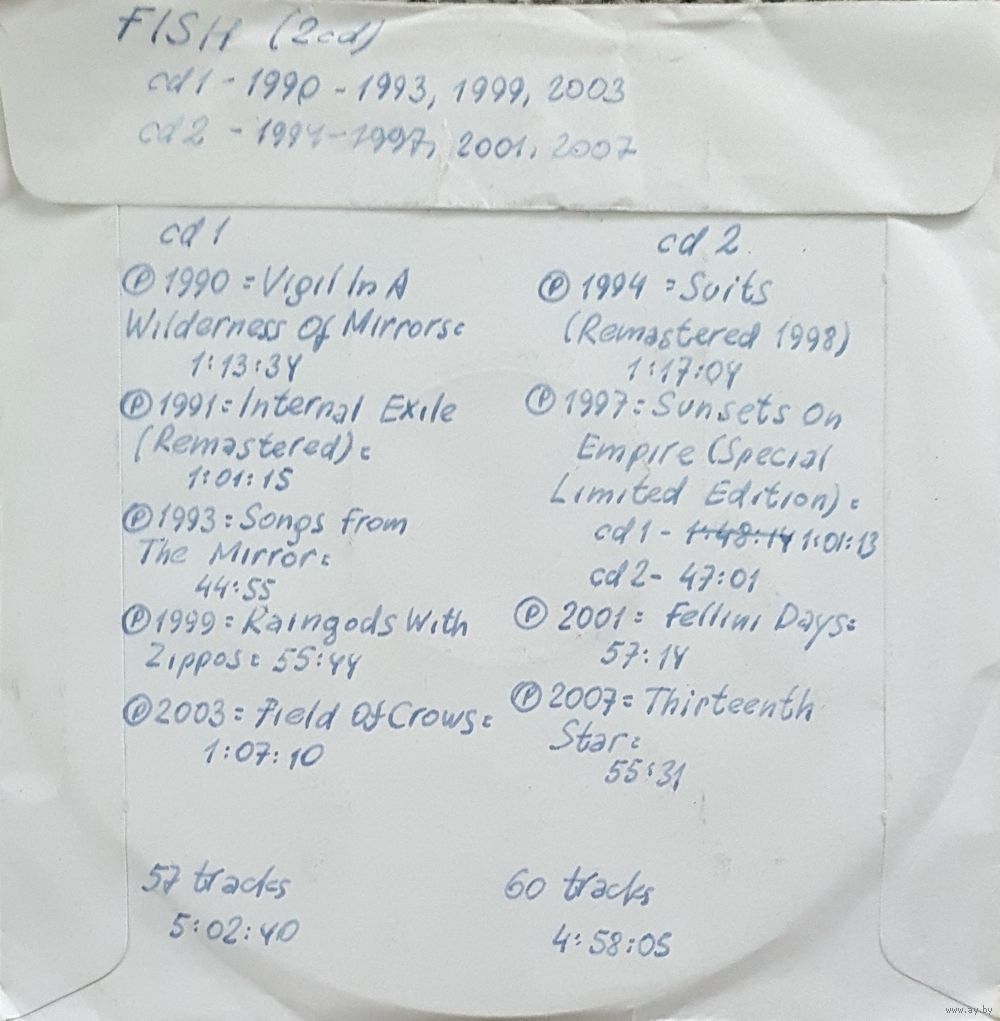 FISH (2cd)
cd1 - 1990 - 1993, 1999, 2003
cd2 - 1994-1997, 2001, 2007
cd 1
Ⓟ 1990 = Vigil In A
Wilderness Of Mirrors:
1:13:34
Ⓟ 1991 = Internal Exile
(Remastered):
1:01:15
Ⓟ 1993 = Songs From
The Mirror:
44:55
Ⓟ 1999 = Raingods With
Zippos: 55:44
Ⓟ 2003 = Field Of Crows:
1:07:10
57 tracks
5:02:40
cd 2
Ⓟ 1994 = Suits
(Remastered 1998)
1:17:04
Ⓟ 1997 = Sunsets On
Empire (Special
Limited Edition):
cd1 - 1:48:14 1:01:13
cd2 - 47:01
Ⓟ 2001 = Fellini Days:
57:14
Ⓟ 2007 = Thirteenth
Star:
55:31
60 tracks
4:58:05
www.ay.by